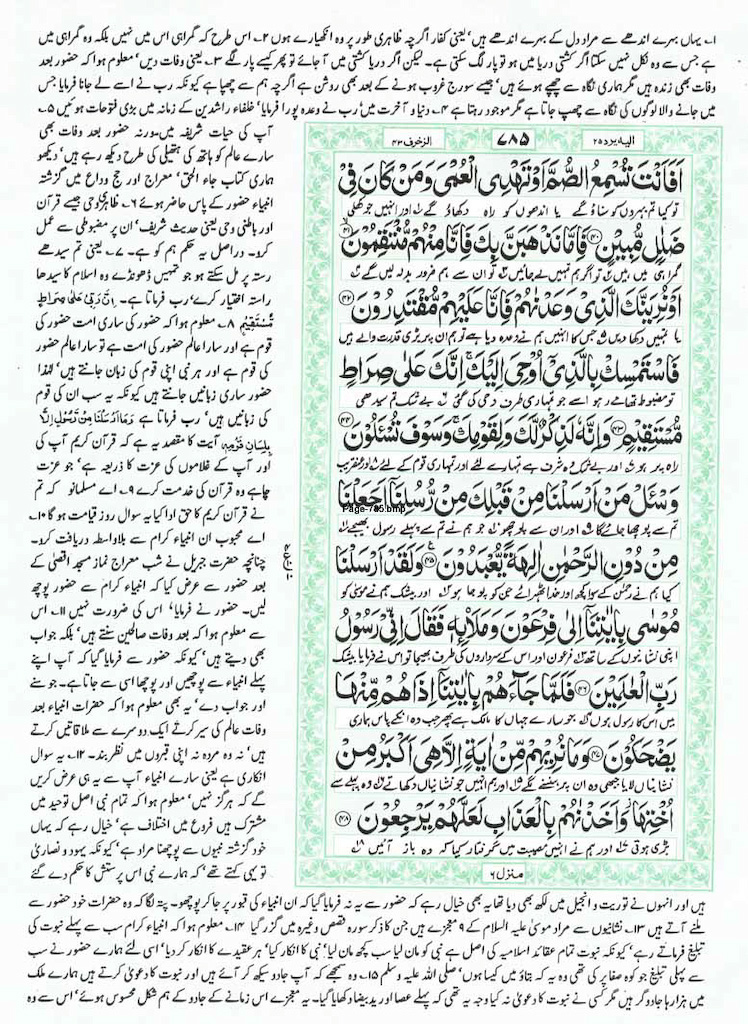 ۱۔ یہاں بہرے اندھے سے مراد دل کے بہرے اندھے ہیں' یعنی کفار اگرچہ ظاہری طور پر وہ انکھیارے ہوں ۲۔ اس طرح کہ گمراہی اس میں نہیں بلکہ وہ گمراہی میں
ہے جس سے وہ نکل نہیں سکتا اگر کشتی دریا میں ہو تو پار لگ سکتی ہے۔ لیکن اگر دریا کشتی میں آ جائے تو پھر کیسے پار لگے ۳۔ یعنی وفات دیں' معلوم ہوا کہ حضور بعد
وفات بھی زندہ ہیں مگر ہماری نگاہ سے چھپے ہوئے ہیں' جیسے سورج غروب ہونے کے بعد بھی روشن ہے اگرچہ ہم سے چھپا ہے کیونکہ رب نے اسے لے جانا فرمایا جس
میں جانے والا لوگوں کی نگاہ سے چھپ جاتا ہے مگر موجود رہتا ہے ۴۔ دنیا و آخرت میں رب نے وعدہ پورا فرمایا' خلفاء راشدین کے زمانہ میں بڑی فتوحات ہوئیں ۵۔
الیہ یرد ۲۵
۷۸۵
الزخرف ۴۳
اَفَاَنْتَ تُسْمِعُ الصُّمَّ اَوْ تَهْدِی الْعُمْیَ وَمَنْ كَانَ فِیْ
تو کیا تم بہروں کو سناؤ گے یا اندھوں کو راہ دکھاؤ گے اور انہیں جو کھلی
ضَلٰلٍ مُّبِیْنٍ ۴۰ فَاِمَّا نَذْهَبَنَّ بِكَ فَاِنَّا مِنْهُمْ مُّنْتَقِمُوْنَ ۴۱
گمراہی میں ہیں تو اگر ہم تمہیں لے جائیں تو ان سے ہم ضرور بدلہ لیں گے
اَوْ نُرِیَنَّكَ الَّذِیْ وَعَدْنٰهُمْ فَاِنَّا عَلَیْهِمْ مُّقْتَدِرُوْنَ ۴۲
یا تمہیں دکھا دیں جس کا انہیں ہم نے وعدہ دیا ہے تو ہم ان پر بڑی قدرت والے ہیں
فَاسْتَمْسِكْ بِالَّذِیْۤ اُوْحِیَ اِلَیْكَ اِنَّكَ عَلٰی صِرَاطٍ
تو مضبوط تھامے رہو اسے جو تمہاری طرف وحی کی گئی بے شک تم سیدھی
مُّسْتَقِیْمٍ ۴۳ وَاِنَّهٗ لَذِكْرٌ لَّكَ وَلِقَوْمِكَ وَسَوْفَ تُسْئَلُوْنَ ۴۴
راہ پر ہو اور بے شک وہ شرف ہے تمہارے لئے اور تمہاری قوم کے لئے اور عنقریب
وَسْئَلْ مَنْ اَرْسَلْنَا مِنْ قَبْلِكَ مِنْ رُّسُلِنَاۤ اَجَعَلْنَا
Page-785.bmp
تم سے پوچھا جائے گا اور ان سے پوچھو جو ہم نے تم سے پہلے رسول بھیجے
مِنْ دُوْنِ الرَّحْمٰنِ اٰلِهَةً یُّعْبَدُوْنَ ۴۵ وَلَقَدْ اَرْسَلْنَا
کیا ہم نے رحمٰن کے سوا کچھ اور خدا ٹھہرائے جن کو پوجا ہو اور بیشک ہم نے موسیٰ کو
مُوْسٰی بِاٰیٰتِنَاۤ اِلٰی فِرْعَوْنَ وَمَلَا۟ئِهٖ فَقَالَ اِنِّیْ رَسُوْلُ
اپنی نشانیوں کے ساتھ فرعون اور اس کے سرداروں کی طرف بھیجا تو اس نے فرمایا بیشک
رَبِّ الْعٰلَمِیْنَ ۴۶ فَلَمَّا جَآءَهُمْ بِاٰیٰتِنَاۤ اِذَا هُمْ مِّنْهَا
میں اس کا رسول ہوں جو سارے جہاں کا مالک ہے پھر جب وہ انکے پاس ہماری
یَضْحَكُوْنَ ۴۷ وَمَا نُرِیْهِمْ مِّنْ اٰیَةٍ اِلَّا هِیَ اَكْبَرُ مِنْ
نشانیاں لایا جبھی وہ ان پر ہنسنے لگے اور ہم انہیں جو نشانیاں دکھاتے وہ پہلے سے
اُخْتِهَا وَاَخَذْنٰهُمْ بِالْعَذَابِ لَعَلَّهُمْ یَرْجِعُوْنَ ۴۸
بڑی ہوتی اور ہم نے انہیں مصیبت میں گرفتار کیا کہ وہ باز آئیں
منزل ۶
آپ کی حیات شریفہ میں۔ ورنہ حضور بعد وفات بھی
سارے عالم کو ہاتھ کی ہتھیلی کی طرح دیکھ رہے ہیں' دیکھو
ہماری کتاب جاء الحق' معراج اور حج وداع میں گزشتہ
انبیاء حضور کے پاس حاضر ہوئے ۶۔ ظاہر وحی جیسے قرآن
اور باطنی وحی یعنی حدیث شریف' ان پر مضبوطی سے عمل
کرو۔ دراصل یہ حکم ہم کو ہے۔ ۷۔ یعنی تم سیدھے
رستہ پر مل سکتے ہو جو تمہیں ڈھونڈے وہ اسلام کا سیدھا
راستہ اختیار کرے' رب فرماتا ہے۔ اِنَّ رَبِّیْ عَلٰی صِرَاطٍ
مُّسْتَقِیْمٍ ۸۔ معلوم ہوا کہ حضور کی ساری امت حضور کی
قوم ہے اور سارا عالم حضور کی امت ہے تو سارا عالم حضور
کی قوم ہے اور ہر نبی اپنی قوم کی زبان جانتے ہیں' لہٰذا
حضور ساری زبانیں جانتے ہیں کیونکہ یہ سب ان کی قوم
کی زبانیں ہیں' رب فرماتا ہے وَمَا اَرْسَلْنَا مِنْ رَّسُوْلٍ اِلَّا
بِلِسَانِ قَوْمِهٖ آیت کا مقصد یہ ہے کہ قرآن کریم آپ کی
اور آپ کے غلاموں کی عزت کا ذریعہ ہے' جو عزت
چاہے وہ قرآن کی خدمت کرے ۹۔ اے مسلمانو کہ تم
نے قرآن کریم کا حق ادا کیا یہ سوال روز قیامت ہو گا ۱۰۔
اے محبوب ان انبیاء کرام سے بلاواسطہ دریافت کرو۔
چنانچہ حضرت جبریل نے شب معراج نماز مسجد اقصیٰ کے
بعد حضور سے عرض کیا کہ حضور انبیاء کرام سے پوچھ
لیں۔ حضور نے فرمایا' اس کی ضرورت نہیں ۱۱۔ اس
سے معلوم ہوا کہ بعد وفات صالحین سنتے ہیں' بلکہ جواب
بھی دیتے ہیں' کیونکہ حضور سے فرمایا گیا کہ آپ اپنے
پہلے انبیاء سے پوچھیں اور پوچھا اسی سے جاتا ہے۔ جو سنے
اور جواب دے' یہ بھی معلوم ہوا کہ حضرات انبیاء بعد
وفات عالم کی سیر کرتے ایک دوسرے سے ملاقاتیں کرتے
ہیں' نہ وہ مردہ نہ اپنی قبروں میں نظر بند۔ ۱۲۔ یہ سوال
انکاری ہے یعنی سارے انبیاء آپ سے یہ ہی عرض کریں
گے کہ ہرگز نہیں' معلوم ہوا کہ تمام نبی اصل توحید میں
مشترک ہیں فروع میں اختلاف ہے' خیال رہے کہ یہاں
خود گزشتہ نبیوں سے پوچھنا مراد ہے' کیونکہ یہود و نصاریٰ
تو یہی کہتے تھے' کہ ہمارے نبی اس پرستش کا حکم دے گئے
ہیں اور انہوں نے توریت و انجیل میں لکھ بھی دیا تھا یہ بھی خیال رہے کہ حضور سے یہ نہ فرمایا گیا کہ ان انبیاء کی قبور پر جا کر پوچھو۔ پتہ لگا کہ وہ حضرات خود حضور سے
ملنے آتے ہیں ۱۳۔ نشانیوں سے مراد موسیٰ علیہ السلام کے ۹ معجزے ہیں جن کا ذکر سورہ قصص وغیرہ میں گزر گیا ۱۴۔ معلوم ہوا کہ انبیاء کرام سب سے پہلے نبوت کی
تبلیغ فرماتے رہے' کیونکہ نبوت تمام عقائد اسلامیہ کی اصل ہے نبی کو مان لیا سب کچھ مان لیا' نبی کا انکار کیا' ہر عقیدے کا انکار کر دیا' اسی لئے ہمارے حضور نے سب
سے پہلی تبلیغ جو کوہ صفا پر کی تھی وہ یہ کہ بتاؤ میں کیسا ہوں' صلی اللہ علیہ وسلم ۱۵۔ وہ سمجھے کہ آپ جادو سیکھ کر آئے ہیں اور نبوت کا دعویٰ کرتے ہیں ہمارے ملک
میں ہزارہا جادوگر ہیں مگر کسی نے نبوت کا دعویٰ نہ کیا وجہ یہ تھی کہ پہلے عصا اور ید بیضا دکھایا گیا۔ یہ معجزے اس زمانے کے جادو کے ہم شکل محسوس ہوئے' اس سے وہ